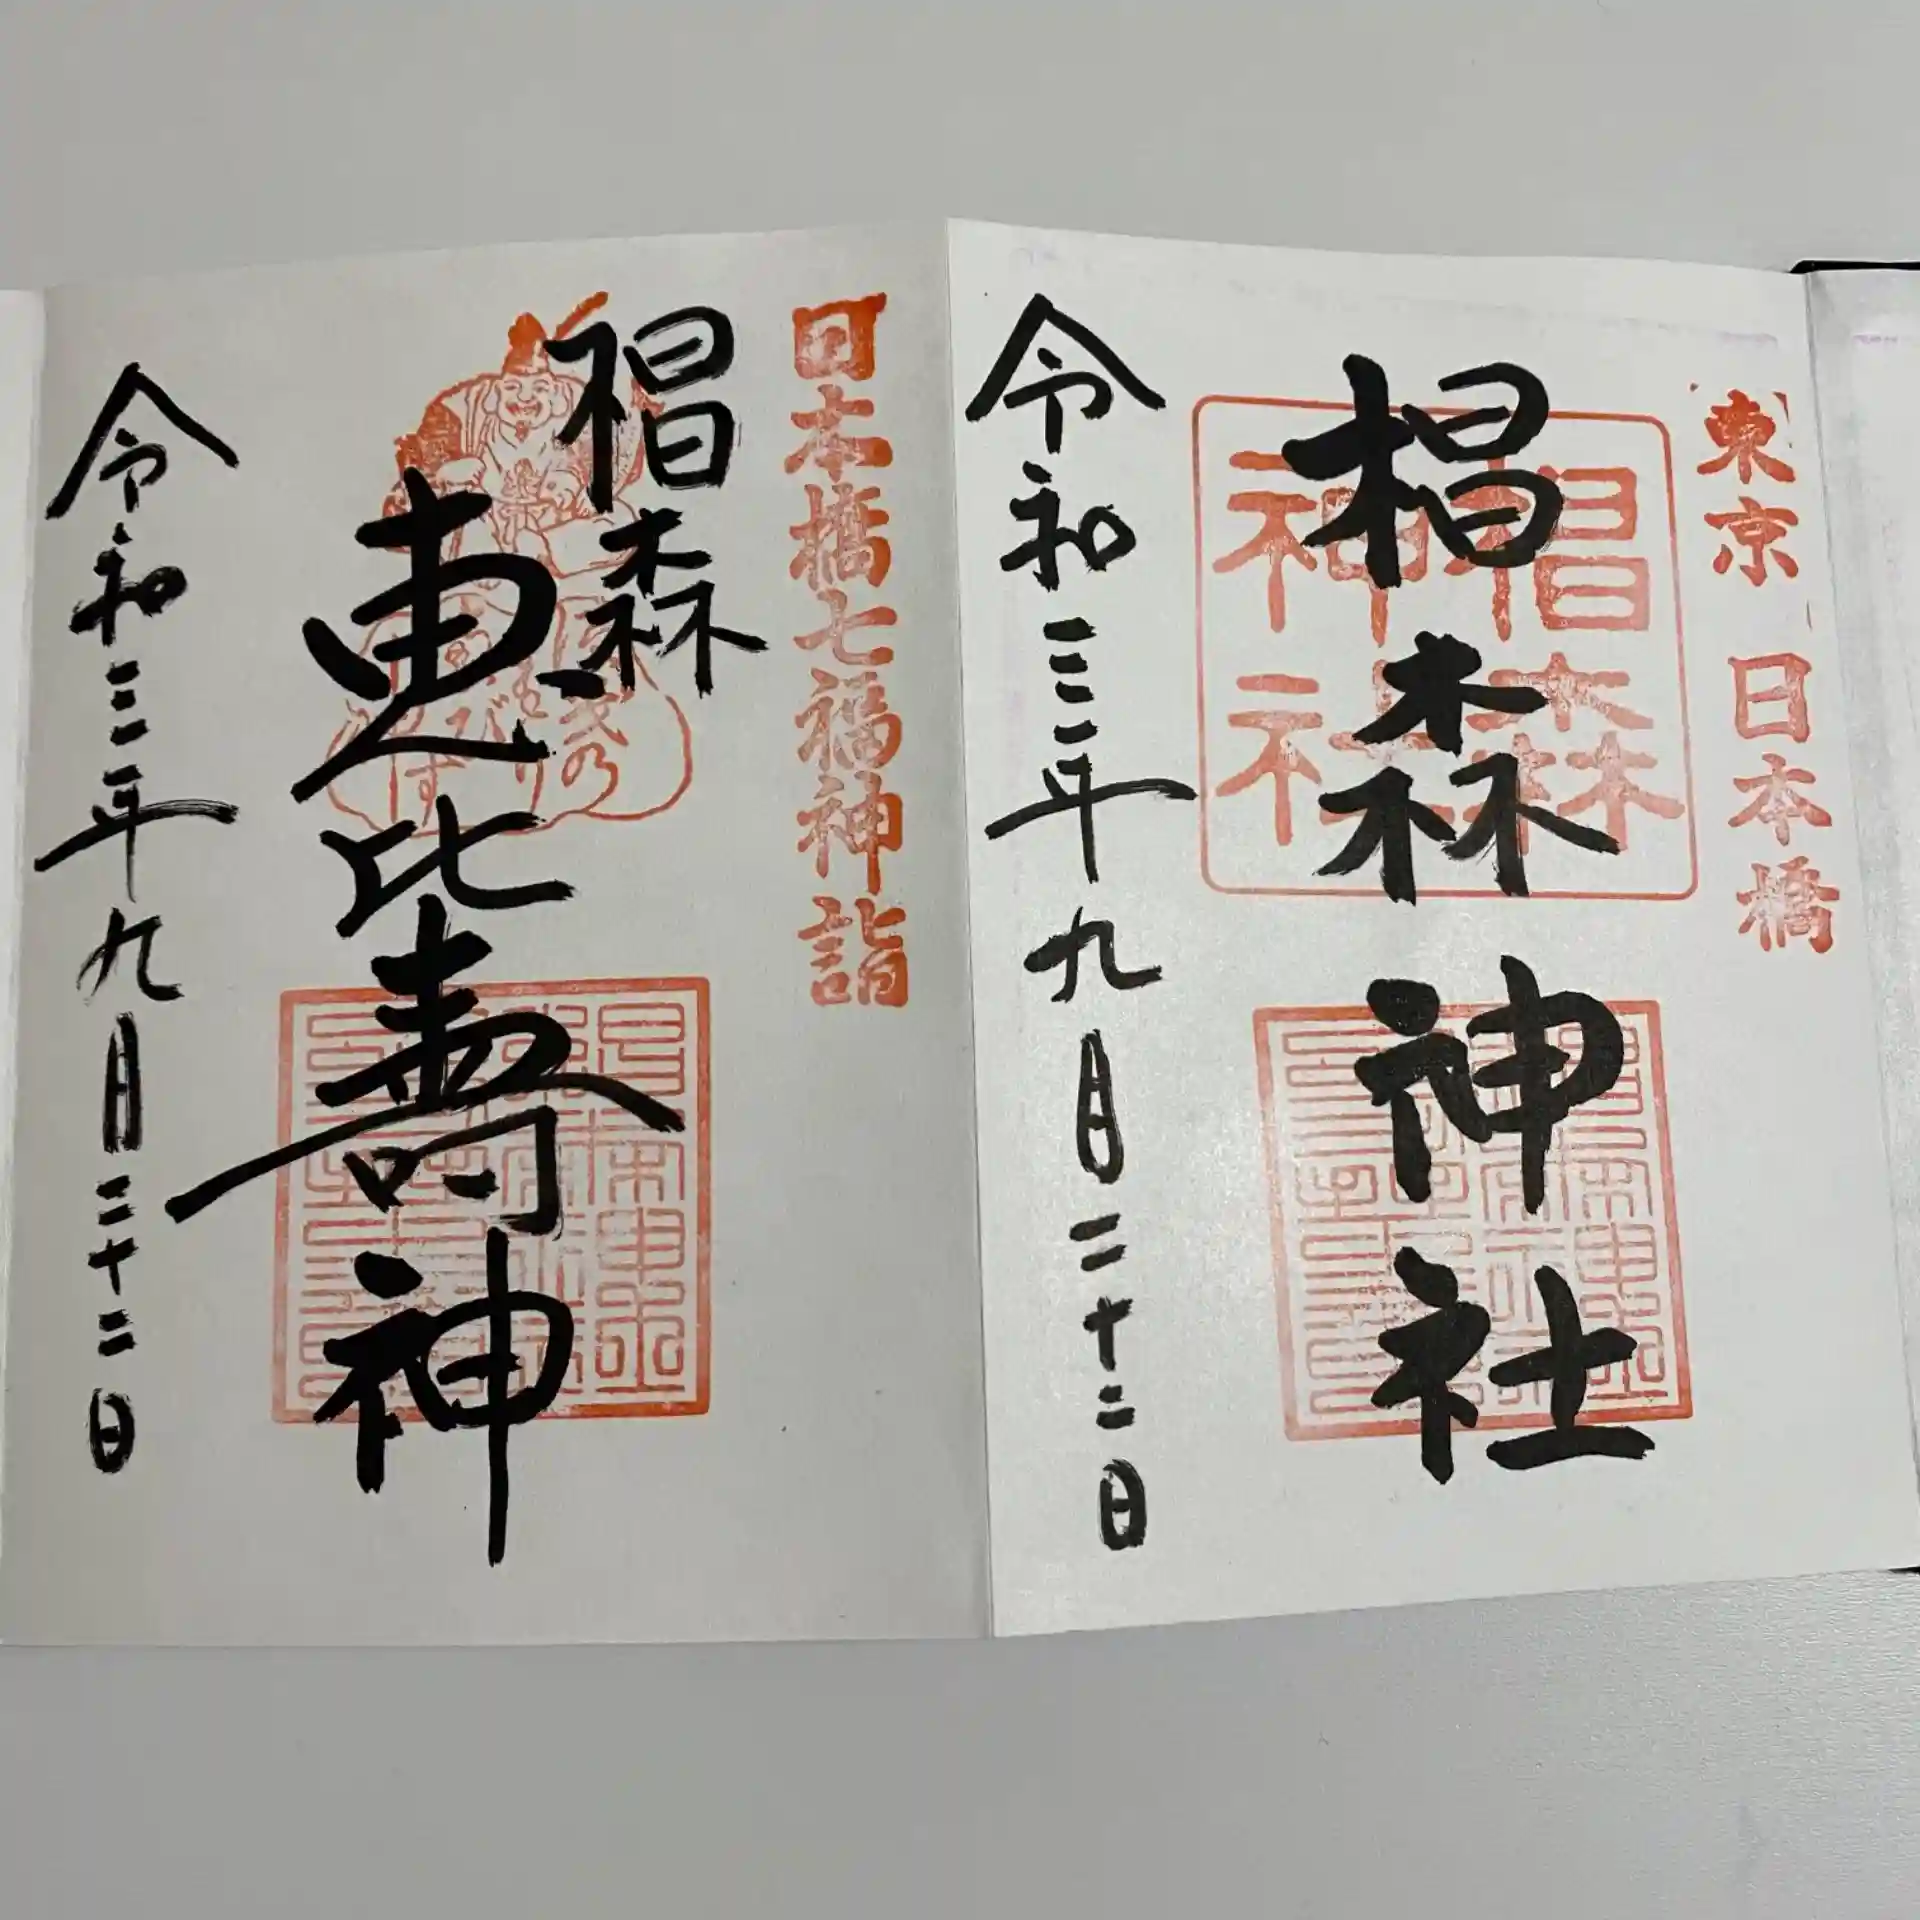 東京 日本橋
椙森神社
椙森神社
令和三年九月二十二日
日本橋七福神詣
椙森
恵比寿神
令和三年九月二十二日